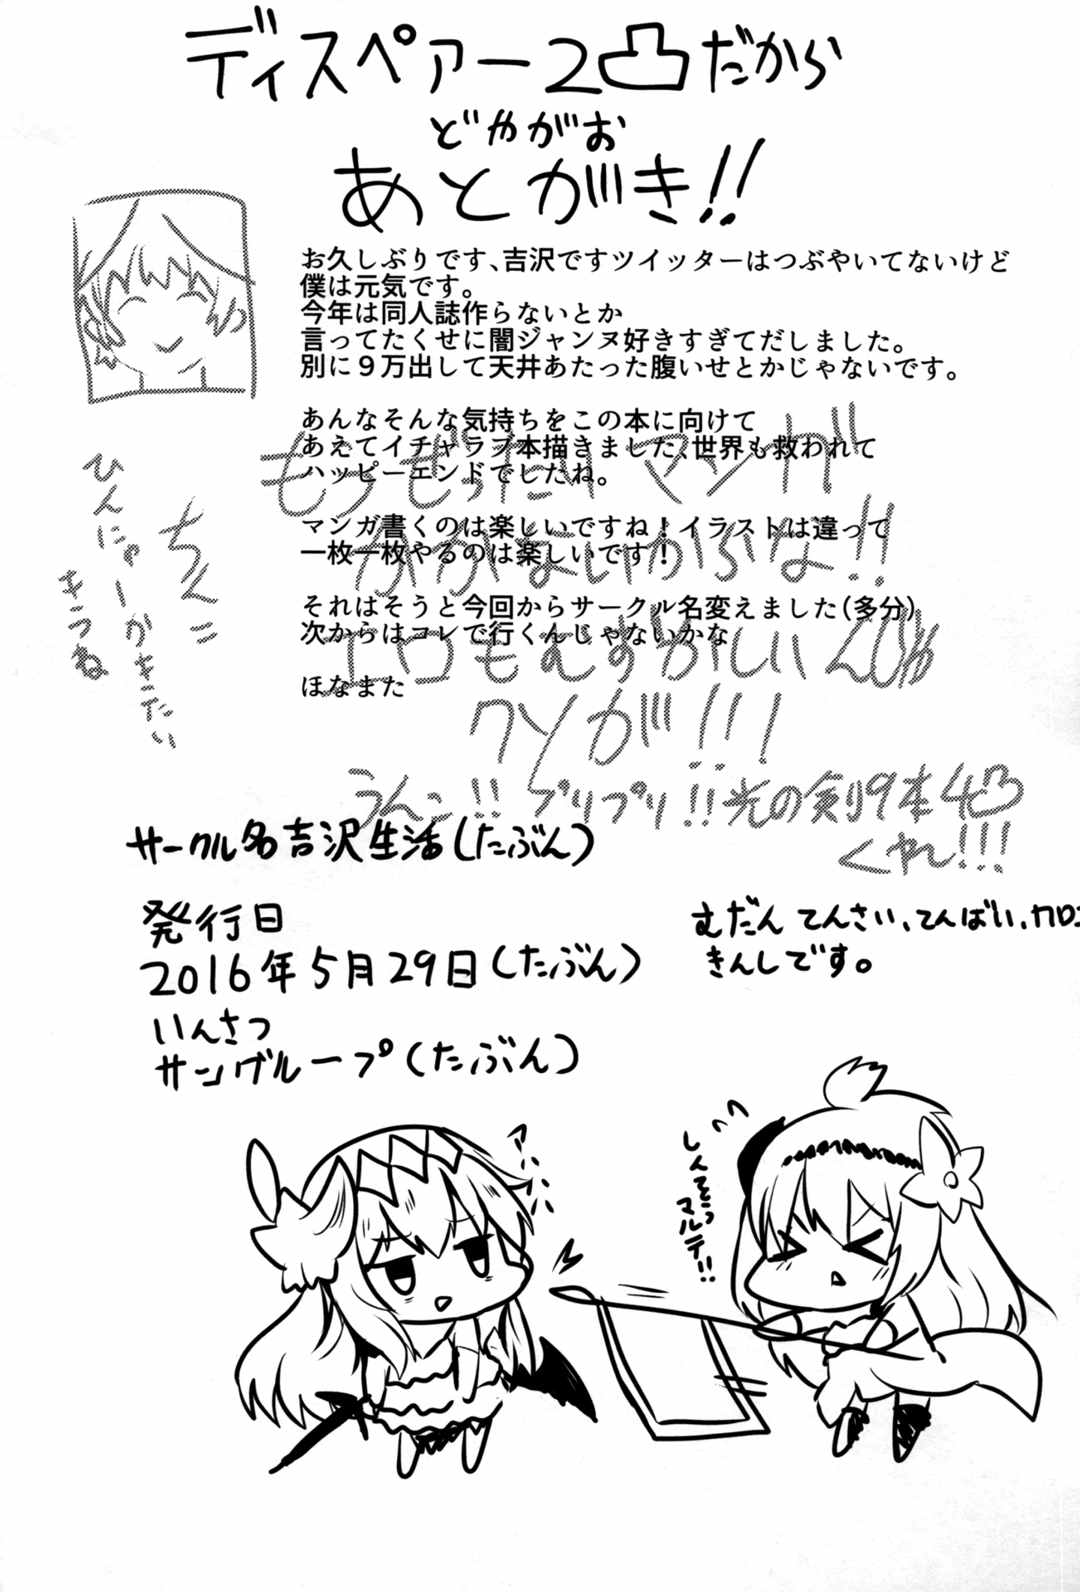 ディスペアー2凸だから
どやがお
あとがき!!
お久しぶりです、吉沢ですツイッターはつぶやいてないけど
僕は元気です。
今年は同人誌作らないとか
言ってたくせに闇ジャンヌ好きすぎてだしました。
別に９万出して天井あたった腹いせとかじゃないです。
あんなそんな気持ちをこの本に向けて
あえてイチャラブ本描きました、世界も救われて
ハッピーエンドでしたね。
マンガ書くのは楽しいですね！イラストは違って
一枚一枚やるのは楽しいです！
それはそうと今回からサークル名変えました（多分）
次からはコレで行くんじゃないかな
ほなまた
もうぜったいマンガ
かかないからな!!
エロもむずかしい
クソが!!!
うんこ!!ブリブリ!!光の剣9本4凸
くやし!!!
ちくに
ひんにゅーがきたい
きつね
サークル名吉沢生活(たぶん)
発行日
2016年5月29日(たぶん)
いんさつ
サングループ(たぶん)
むだん てんさい、てんばい、
きんしです。
アハハハ
しんそっ
マルテ!!